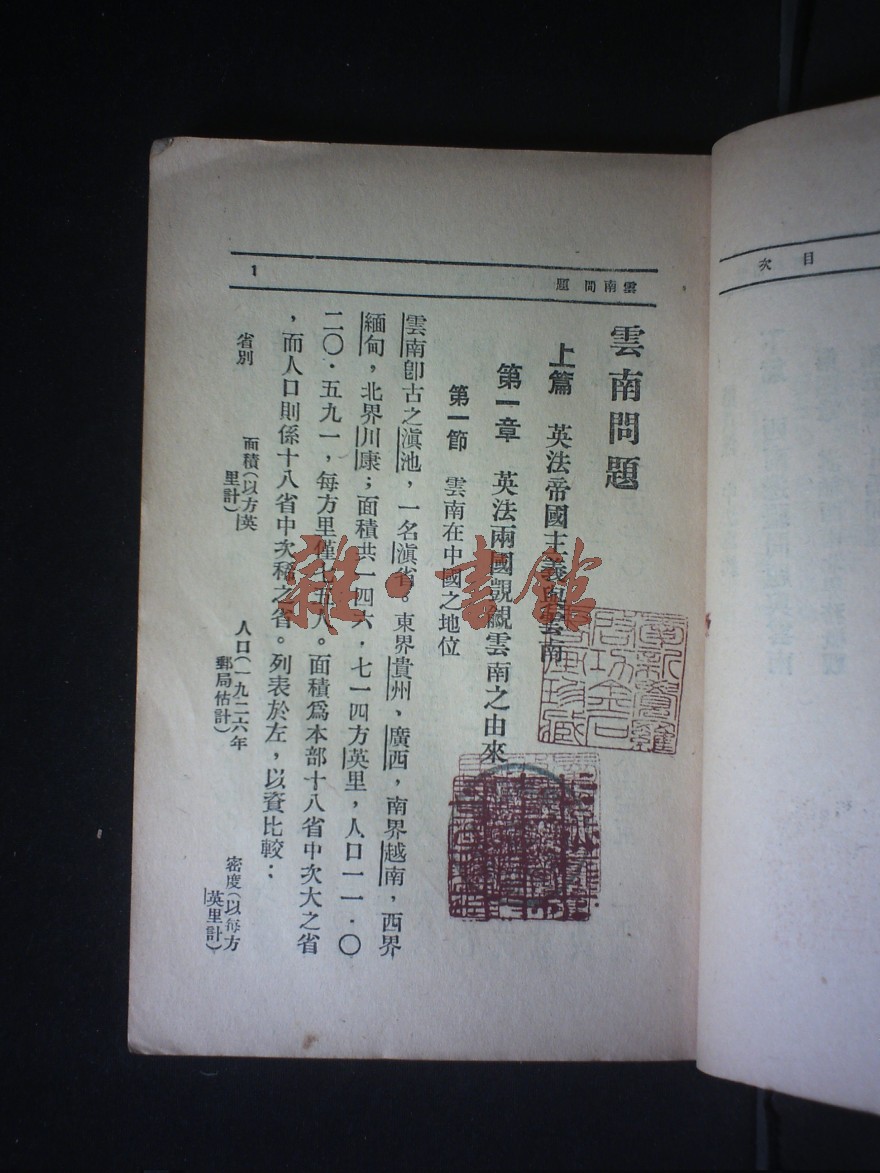 目次
雲南問題
1
雲南問題
上篇 英法帝國主義與雲南
第一章 英法兩國覬覦雲南之由來
第一節 雲南在中國之地位
雲南卽古之滇池，一名滇省。東界貴州，廣西，南界越南，西界
緬甸，北界川康；面積共一四六．七一四方英里，人口一一．〇
二〇．五九一，每方里僅七五人。面積爲本部十八省中次大之省
，而人口則係十八省中次稀之省。列表於左，以資比較：
省別
面積（以方英
里計）
人口（一九二六年
郵局估計）
密度（以每方
英里計）
雜·書館